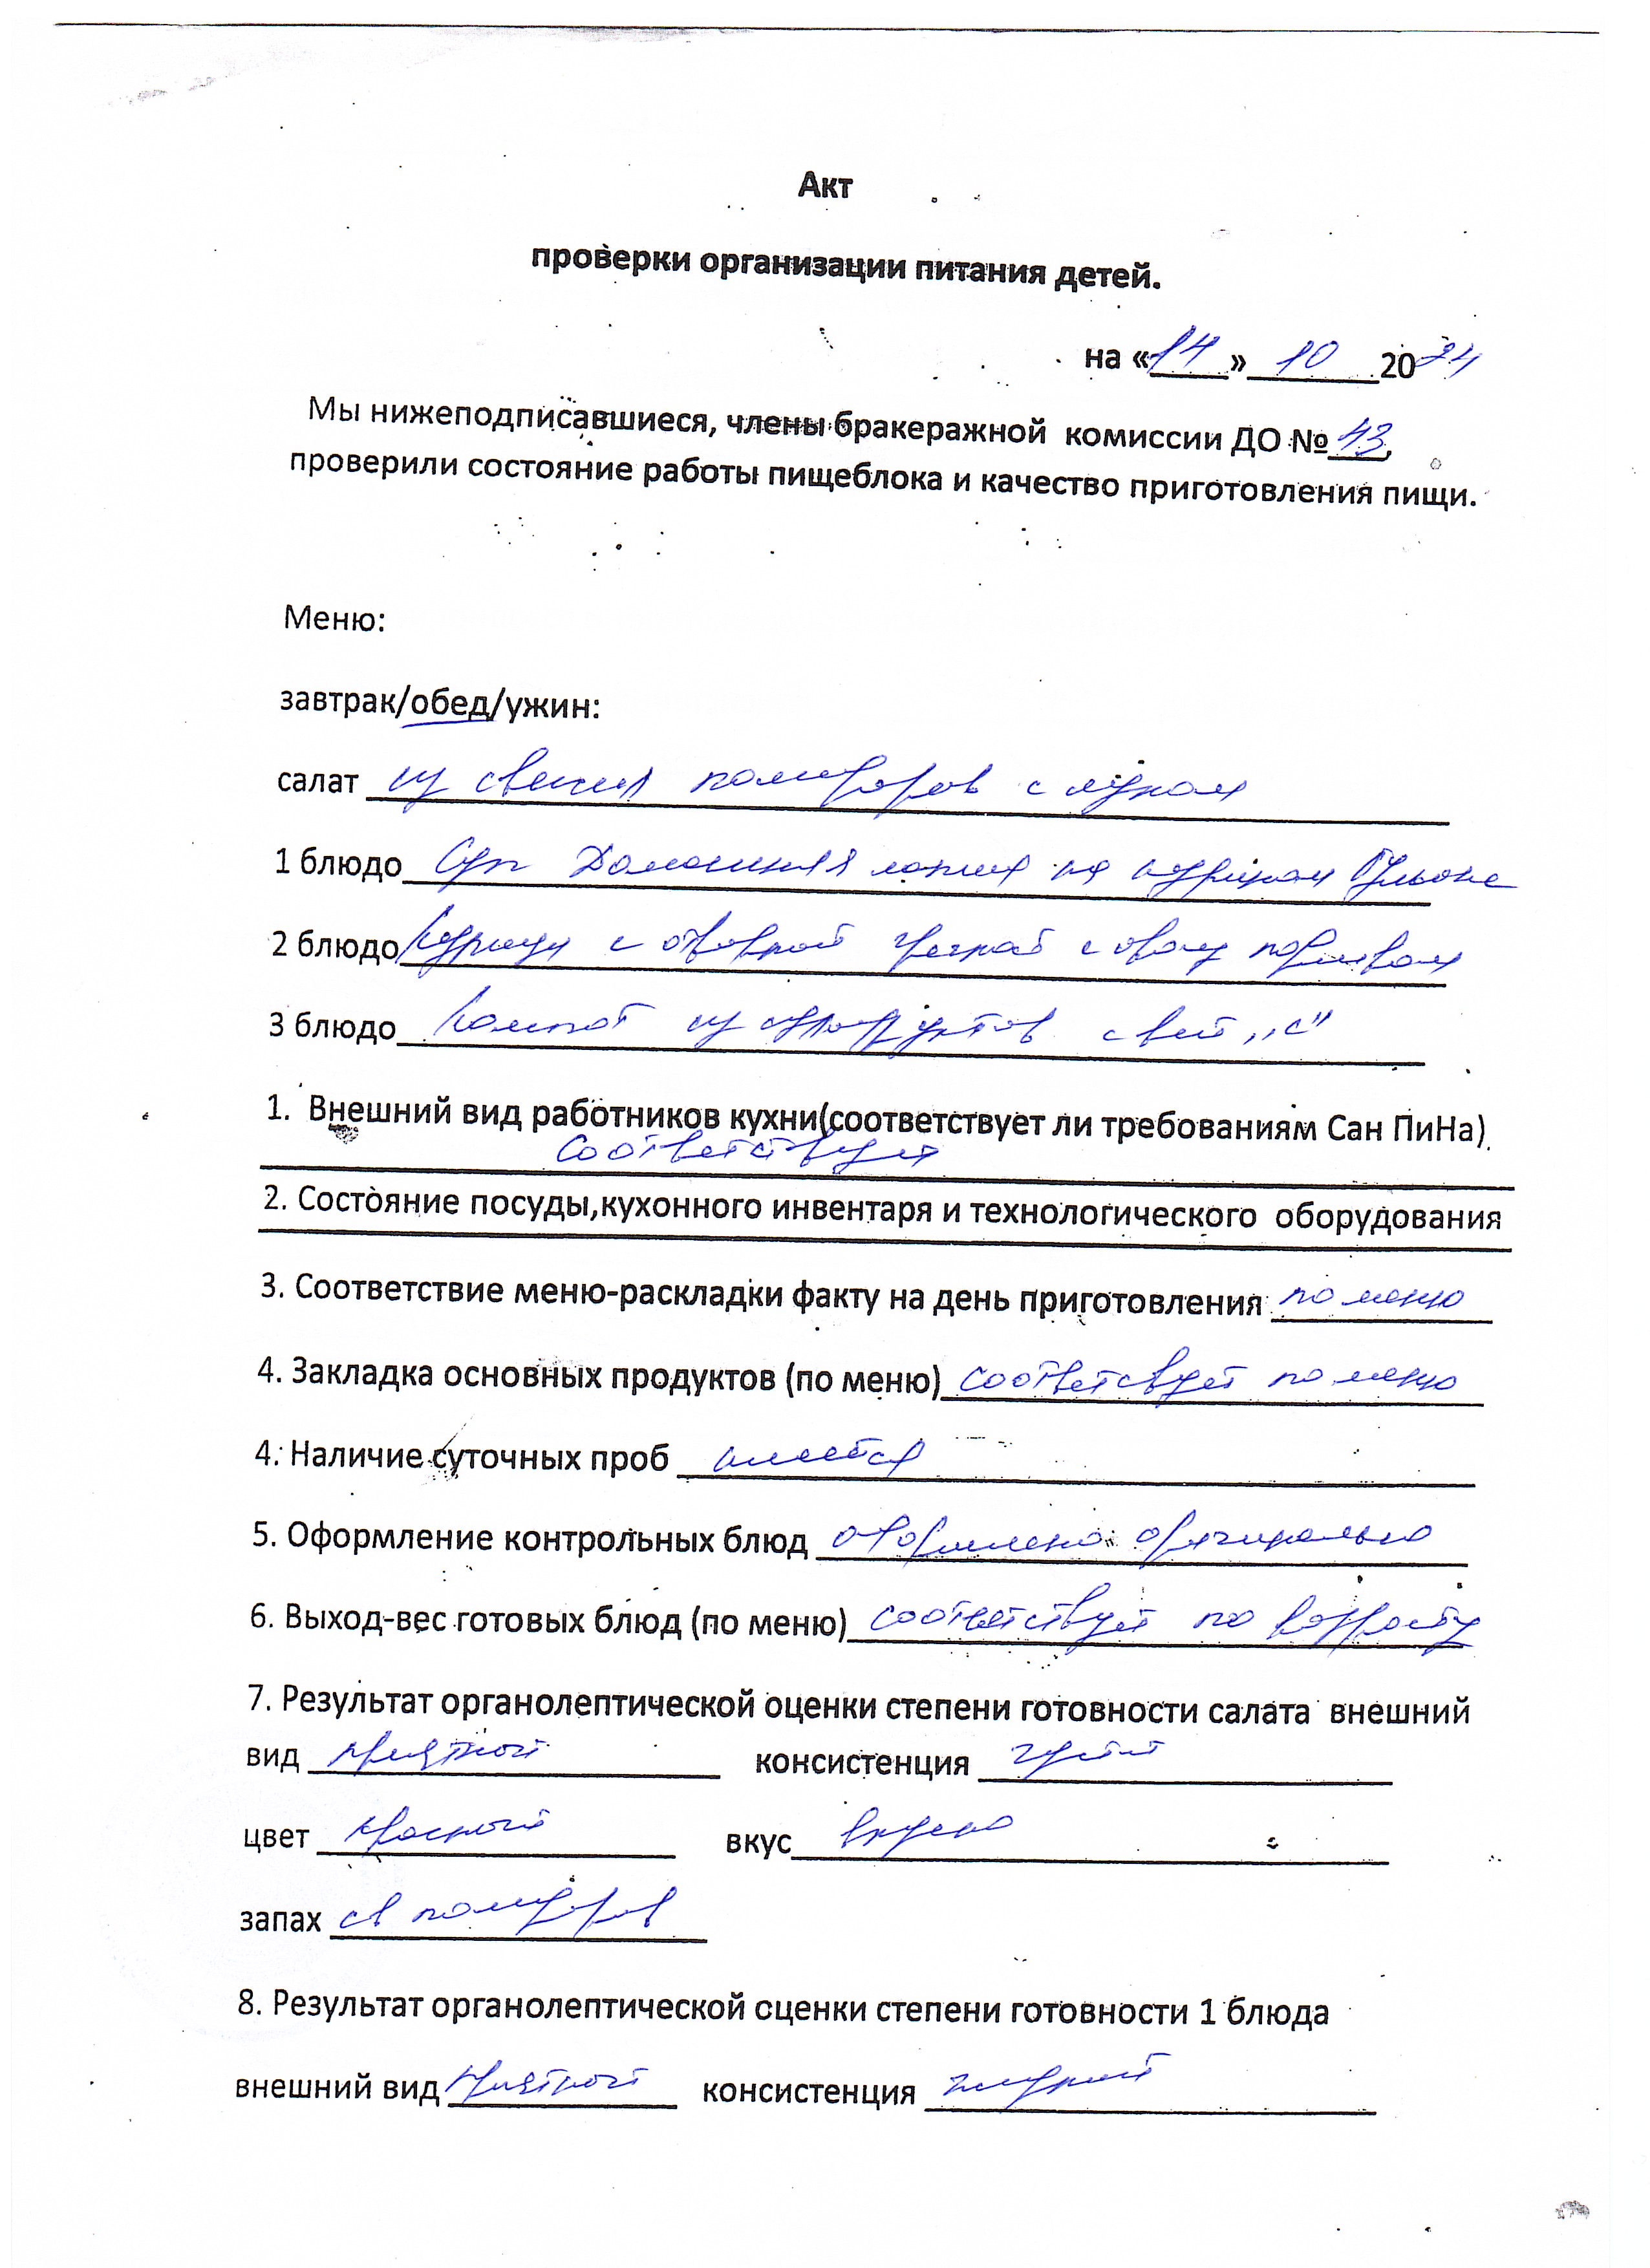 Акт
проверки организации питания детей.
на «14» 10 2024
Мы нижеподписавшиеся, члены бракеражной комиссии ДО № 43,
проверили состояние работы пищеблока и качество приготовления пищи.
Меню:
завтрак/обед/ужин:
салат из свежих помидоров с луком
1 блюдо Суп Домашняя лапша на курином бульоне
2 блюдо Курица с отварной гречкой с овощ подливом
3 блюдо Компот из сухофруктов с вит „С"
1. Внешний вид работников кухни(соответствует ли требованиям Сан ПиНа)
соответствует
2. Состояние посуды,кухонного инвентаря и технологического оборудования
3. Соответствие меню-раскладки факту на день приготовления по меню
4. Закладка основных продуктов (по меню) соответствует по меню
4. Наличие суточных проб имеется
5. Оформление контрольных блюд оформлено
6. Выход-вес готовых блюд (по меню) соответствует по возрасту
7. Результат органолептической оценки степени готовности салата внешний
вид приятный консистенция густая
цвет красный вкус вкусно
запах св помидоров
8. Результат органолептической оценки степени готовности 1 блюда
внешний вид приятный консистенция жидкий